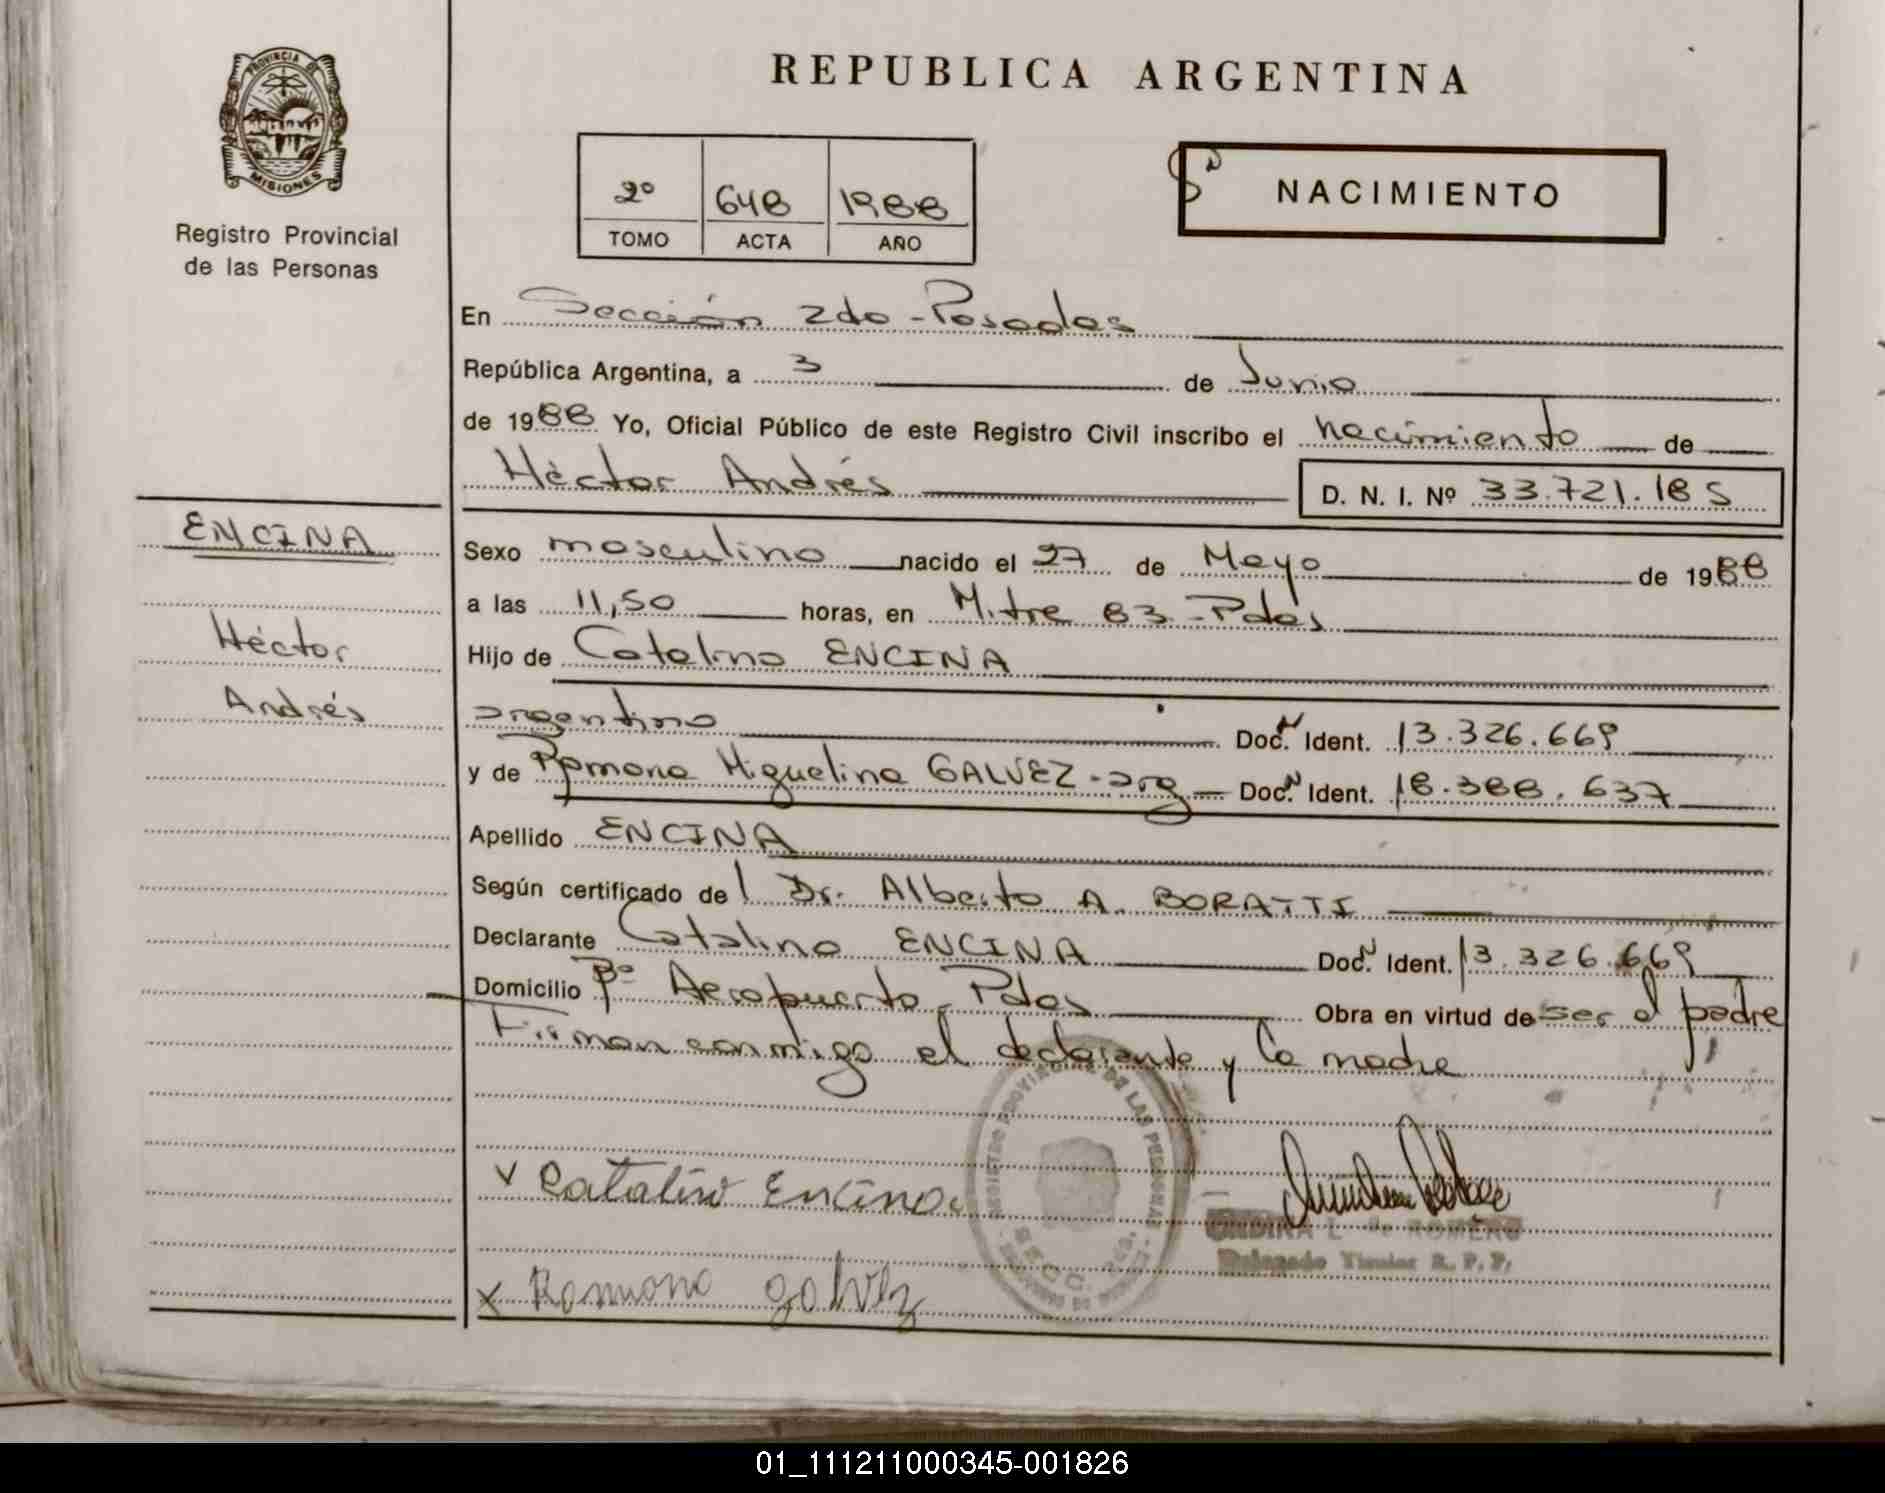 PROVINCIA DE
MISIONES
Registro Provincial
de las Personas
REPUBLICA ARGENTINA
2º 648 1988
TOMO ACTA AÑO
NACIMIENTO
En Sección 2da - Posadas
República Argentina, a 3 de Junio
de 1988 Yo, Oficial Público de este Registro Civil inscribo el nacimiento de
Héctor Andrés D. N. I. Nº 33.721.185
ENCINA
Héctor
Andrés
Sexo masculino nacido el 27 de Mayo de 1988
a las 11,50 horas, en Mitre 83 - Pdas
Hijo de Catalino ENCINA
argentino Doc. Ident. 13.326.669
y de Ramona Miguelina GALVEZ - arg Doc. Ident. 18.388.637
Apellido ENCINA
Según certificado del Dr. Alberto A. BORATTI
Declarante Catalino ENCINA Doc. Ident. 13.326.669
Domicilio Bº Aeropuerto - Pdas Obra en virtud de ser el padre
Firman conmigo el declarante y la madre
REGISTRO PROVINCIAL DE LAS PERSONAS
x Catalino Encina
ROMERO
Delegado Titular R. P. P.
x Ramona Galvez
01_111211000345-001826